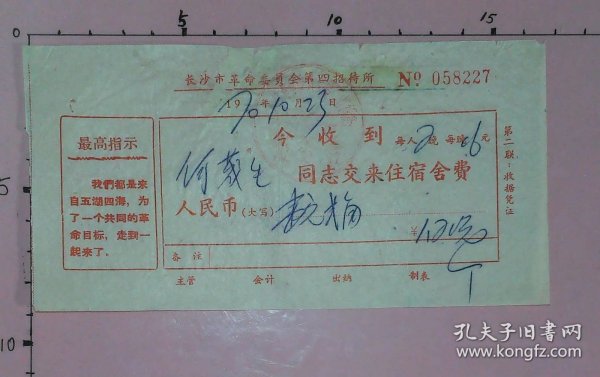 0 5 10 15
长沙市革命委员会第四招待所 № 058227
1970年10月23日
今收到
每人 晚 每晚 元
何 生 同志交来住宿舍费
人民币(大写)
¥
备注
主管 会计 出纳 制表
最高指示
我們都是来
自五湖四海，为
了一个共同的革
命目标，走到一
起来了。
第二联：收据凭证
10
孔夫子旧书网
www.kongfz.com